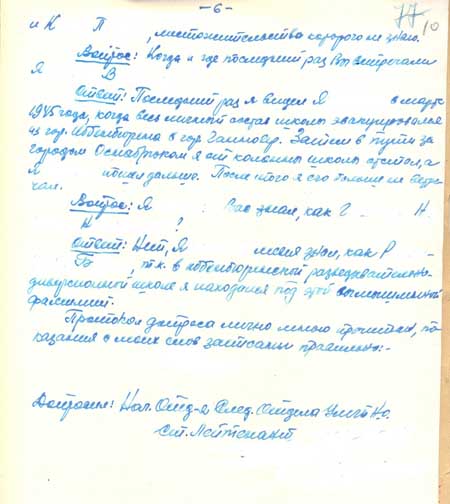 -6-
77
10
и К П , местожительство которого не знаю.
Вопрос: Когда и где последний раз Вы встречали
Я В
Ответ: Последний раз я видел Я в марте
1945 года, когда весь личный состав школы эвакуировался
из гор. в гор. Ганновер. Затем в пути за
городом Оснабрюком я от колонны школы отстал, а
Я дальше. После этого я его больше не встре-
чал.
Вопрос: Я Вас знал, как Г Н.
К ?
Ответ: Нет, Я меня знал, как Р -
Б , т.к. в разведывательно-
диверсионной школе я находился под этой вымышленной
фамилией.
Протокол допроса лично мною прочитан, по-
казания с моих слов записаны правильно:-
Допросил: Нач. Отд-я След. Отдела
Ст. Лейтенант